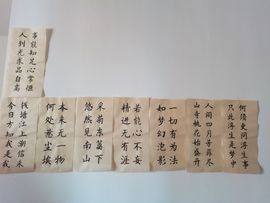 事能知足心常惬
人到无求品自高
何须更问浮生事
只此浮生是梦中
人间四月芳菲尽
山寺桃花始盛开
一切有为法
如梦幻泡影
若能心不妄
精进无有涯
采菊东篱下
悠然见南山
本来无一物
何处惹尘埃
钱塘江上潮信来
今日方知我是我